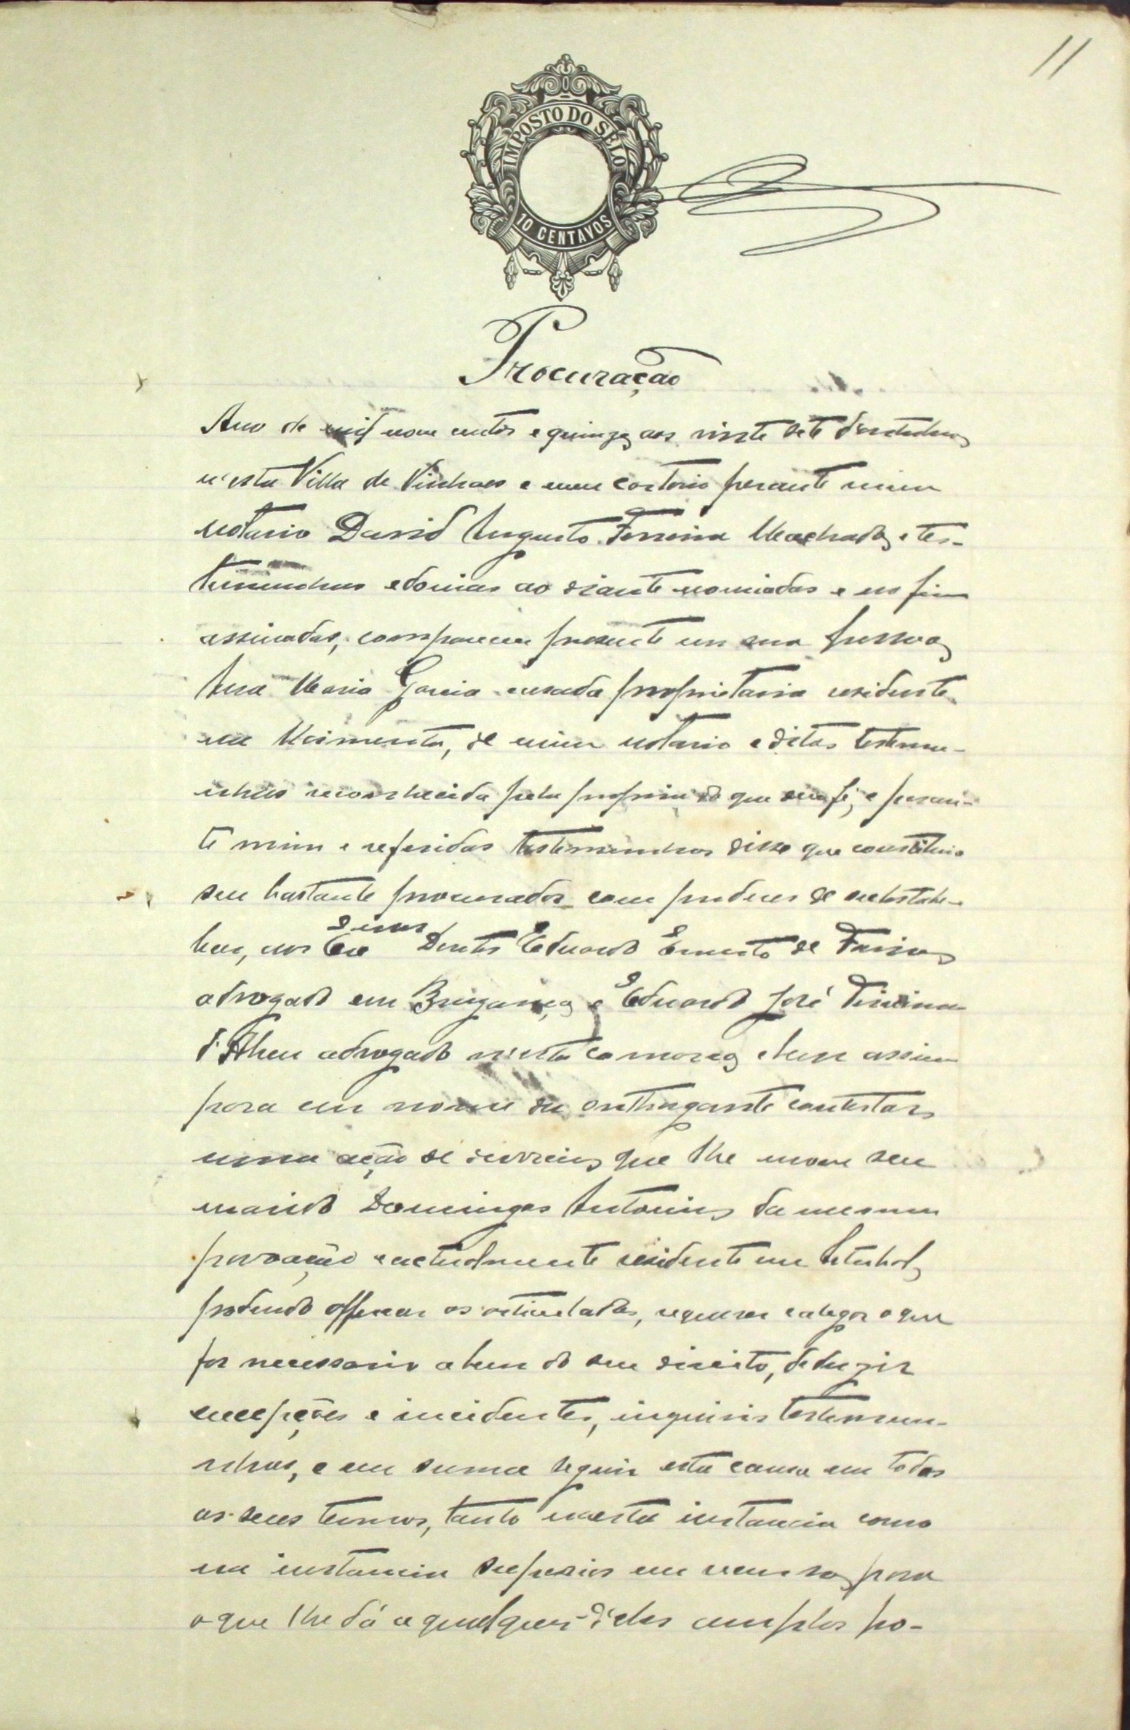 11
IMPOSTO DO SELO
10 CENTAVOS
Procuração
Ano de mil nove centos e quinze, aos vinte sete d'outubro,
n'esta Villa de Vinhaes e meu cartorio perante mim
notario David Augusto Ferreira Machado, e tes-
timunhas edonias ao diante nomiadas e no fim
assinadas, compareceu presente em sua pessoa,
Ana Maria Garcia casada proprietaria residente
na Moimenta, de mim notario e ditas testemu-
nhas reconhecida pela propria do que dou fé, e peran-
te mim e referidas testemunhas disse que constituia
seu bastante procurador com poderes de substabe-
lecer, aos Ex.mos Doutos Eduardo Ernesto de Faria,
advogado em Bragança, e Eduardo José
d'Abreu advogado n'esta comarca, e bem assim
para em nome da outhorgante contestar
uma ação de divorcio, que lhe move seu
marido Domingos Antonio, da mesma
povoação e actualmente residente em Setubal,
podendo offerecer os articulados, requerer e alegar o que
for necessario a bem do seu direito, deduzir
excepções e incidentes, inquirir testemun-
nhas, e em suma seguir esta causa em todos
os seus termos, tanto n'esta instancia como
na instancia superior em recurso, para
o que lhe dá a qualquer d'eles amplos po-